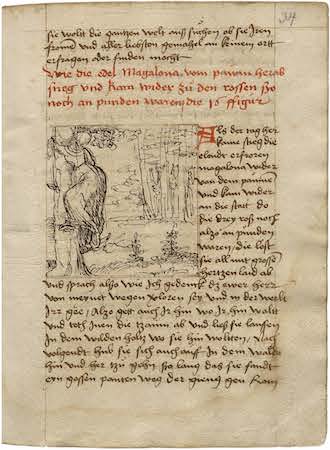 34
sie wolt die gantzen welt auß suchen ob sie Iren
frome und aller liebsten gemahel an keinem ortt
erfragen oder finden mocht
Wie die edel Magalona vom pawm herab
stieg und kam wider zu den rossen so
noch an punden waren die 18 ffigur
Als der tag her
kame stieg die
elendt erfroren
magalona wider
von dem paume
und kam wider
an die statt do
die drey roß noch
also an punden
waren / die lost
sie all mit grossem
hertzen laid ab
und sprach also wie ich gedenck dz ewer herr
von meinet wegen verloren sey und in der welt
Irr gee / Also gett auch Ir hin wo Ir hin wolt
und teth Inen die tzaum ab und ließ sie lauffen
In dem wilden holtz wo sie hin wollten / Nach
volgendt hub sie sich auch auf In dem walde
hin und her zu gehn so lang das sie fandt
ein grossen weg der gieng gen Rom